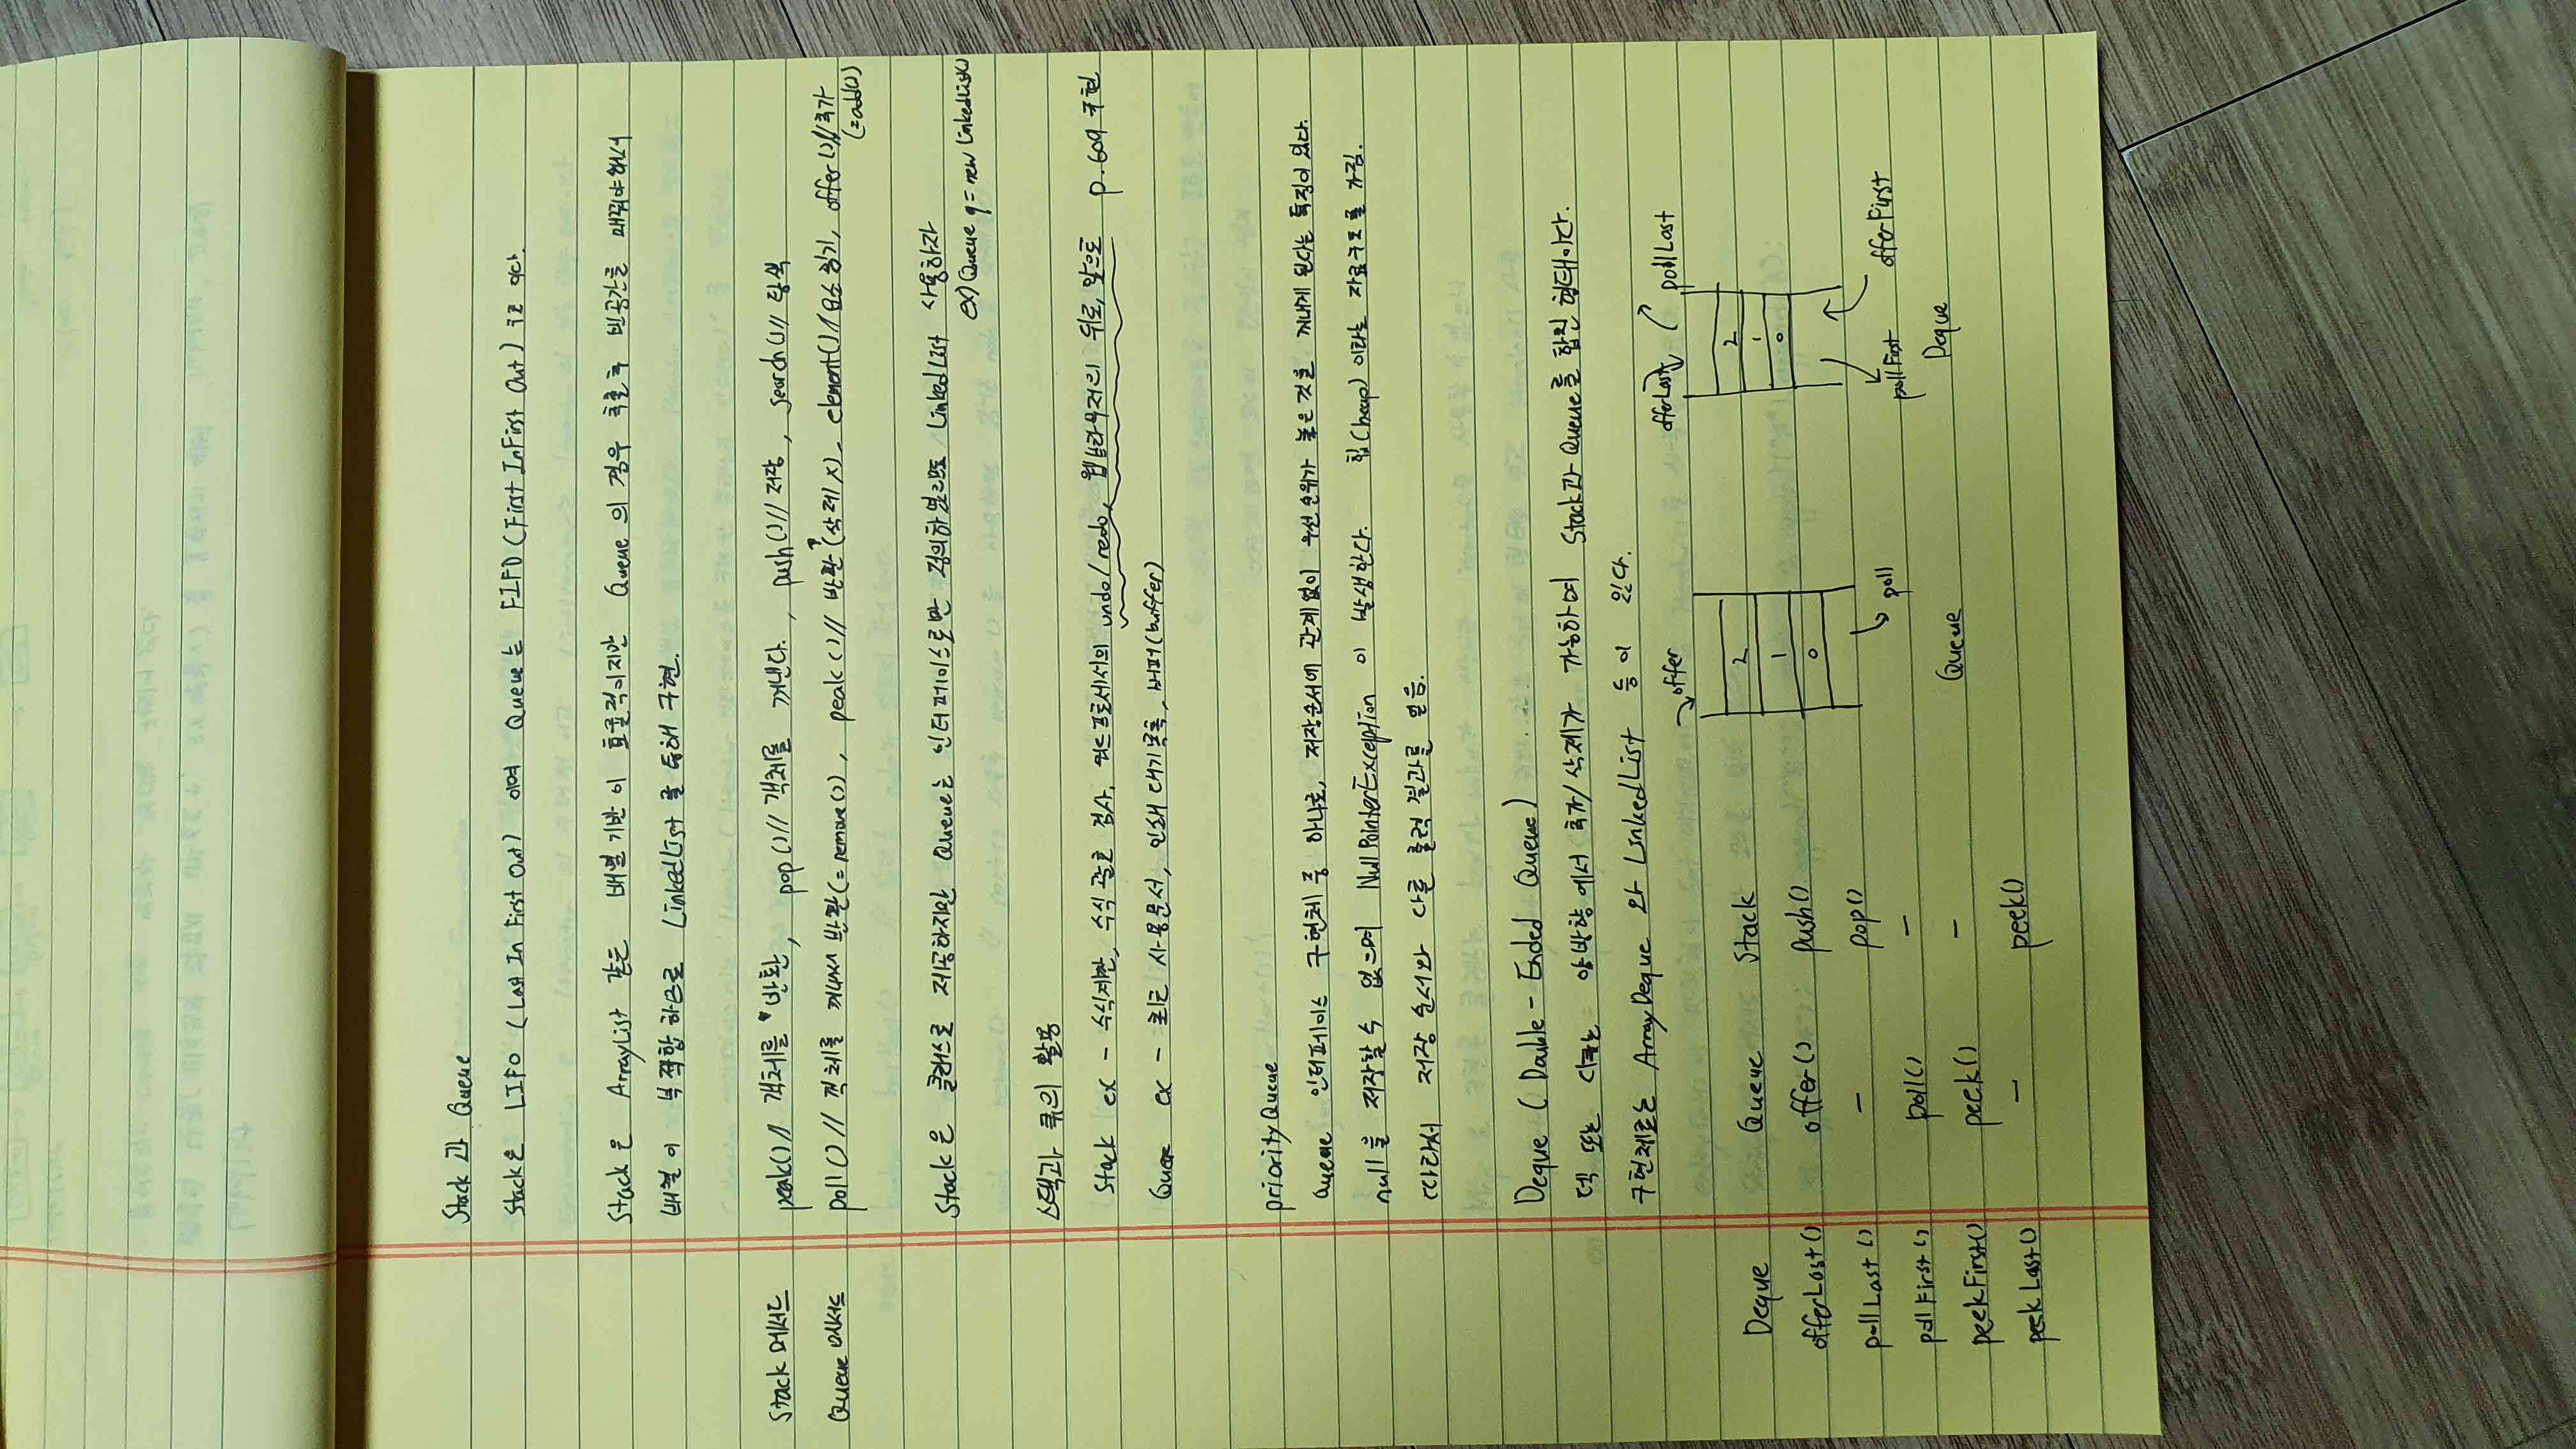 Stack 과 Queue
Stack은 LIFO (Last In First Out) 이며 Queue는 FIFO (First In First Out) 구조 이다.
Stack은 ArrayList 같은 배열 기반이 효율적이지만 Queue 의 경우 추출 후 빈공간을 매꿔야 해서
배열이 부적합 하므로 LinkedList 를 통해 구현.
Stack 메서드 peak() // 객체를 반환, pop() // 객체를 꺼낸다. , push() // 저장 , search() // 탐색
Queue 메서드 poll() // 객체를 꺼내서 반환 (= remove()) , peak () // 반환 (삭제 X). element() // 요소 읽기, offer() // 추가
(=add())
Stack은 클래스로 제공하지만 Queue는 인터페이스로만 정의하였으므로 LinkedList 사용하자
ex) Queue q = new LinkedList()
스택과 큐의 활용
Stack ex - 수식계산, 수식 괄호 검사, 워드프로세서의 undo/redo, 웹브라우저의 뒤로, 앞으로 p.609 구현
Queue ex - 최근 사용문서, 인쇄 대기목록, 버퍼(buffer)
priorityQueue
Queue 인터페이스 구현체 중 하나로, 저장순서에 관계없이 우선순위가 높은 것을 꺼내게 된다는 특징이 있다.
null을 저장할 수 없으며 NullPointerException 이 발생한다. 힙(heap) 이라는 자료구조를 가짐.
따라서 저장 순서와 다른 출력 결과를 얻음.
Deque ( Double - Ended Queue )
덱 또는 디큐는 양방향에서 추가/삭제가 가능하며 Stack과 Queue를 합친 형태이다.
구현체로는 ArrayDeque 와 LinkedList 등이 있다.
Deque Queue Stack
offerLast() offer() push()
pollLast() - pop()
pollFirst() poll() -
peekFirst() peek() -
peekLast() - peek()
offer
2
1
0
poll
Queue
offerLast pollLast
2
1
0
pollFirst offerFirst
Deque